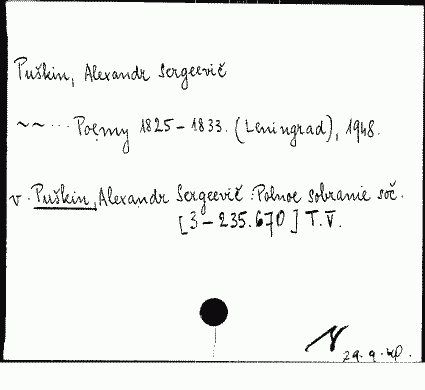 Puškin, Alexandr Sergeevič
~~ ... Poemy 1825 – 1833. (Leningrad), 1948.
v. Puškin, Alexandr Sergeevič : Polnoe sobranie soč.
[3 – 235.670] T. V.